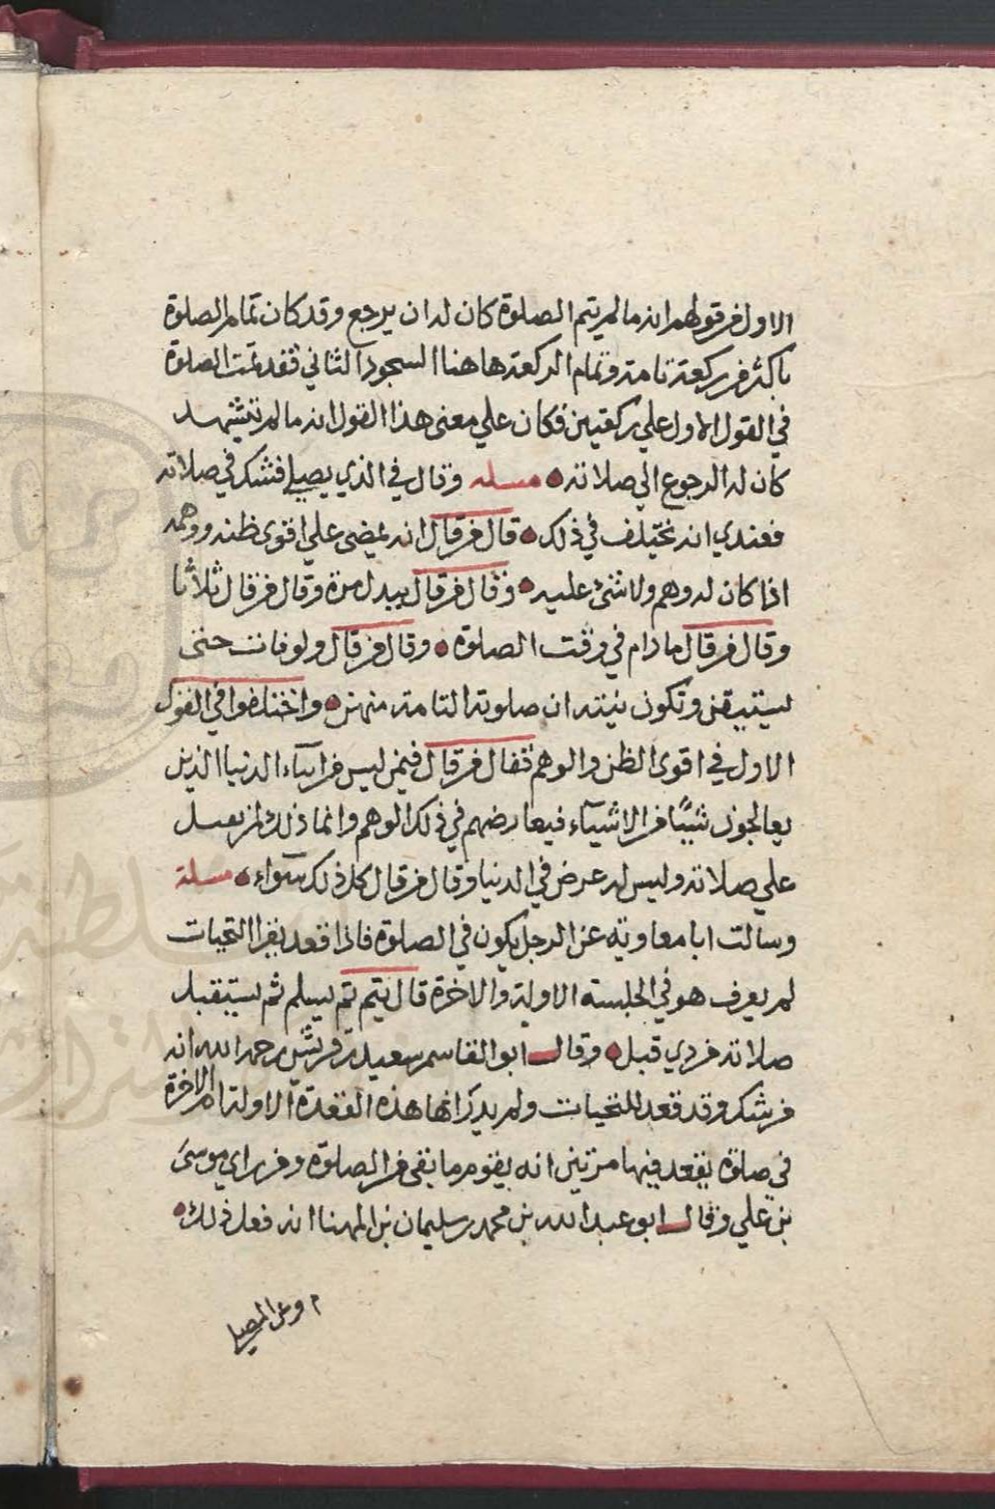 الاول من قولهم انه ما لم يتم الصلوة كان له ان يرجع وقد كان تمام الصلوة
باكثر من ركعة تامة وتمام الركعة هاهنا السجود الثاني فقد تمت الصلوة
في القول الاول علي ركعتين فكان علي معنى هذا القول انه ما لم يتشهد
كان له الرجوع الي صلاته مسله وقال في الذي يصلي فشك في صلاته
فعندي انه يختلف في ذلك قال من قال انه يمضي علي اقوى ظنه ووهمه
اذا كان له وهم ولا شئ عليه وقال من قال يبدل مرة وقال من قال ثلاثا
وقال من قال ما دام في وقت الصلوة وقال من قال ولو فاتت حتى
يستيقن وتكون نيته ان صلوته التامة منهن واختلفوا في القول
الاول في اقوى الظن والوهم فقال من قال فيمن ليس من ابناء الدنيا الذين
يعالجون شيئا من الاشياء فيعارضهم في ذلك الوهم وانما ذلك لمن يقبل
علي صلاته وليس له عرض في الدنيا وقال من قال كل ذلك سواء مسلة
وسالت ابا معاوية عن الرجل يكون في الصلوة فاذا قعد يقرا التحيات
لم يعرف هو في الجلسة الاولة والاخرة قال يتم ثم يسلم ثم يستقبل
صلاته من ذي قبل وقال ابو القاسم سعيد بن قريش رحمه الله انه
من شك وقد قعد للتحيات ولم يدر انها هذه القعدة الاولة ام الاخرة
في صلوة يقعد فيها مرتين انه يقوم ما بقى من الصلوة ومن راي موسى
بن علي وقال ابو عبد الله بن محمد بن سليمان بن المهنا انه فعل ذلك
وعن المصلي